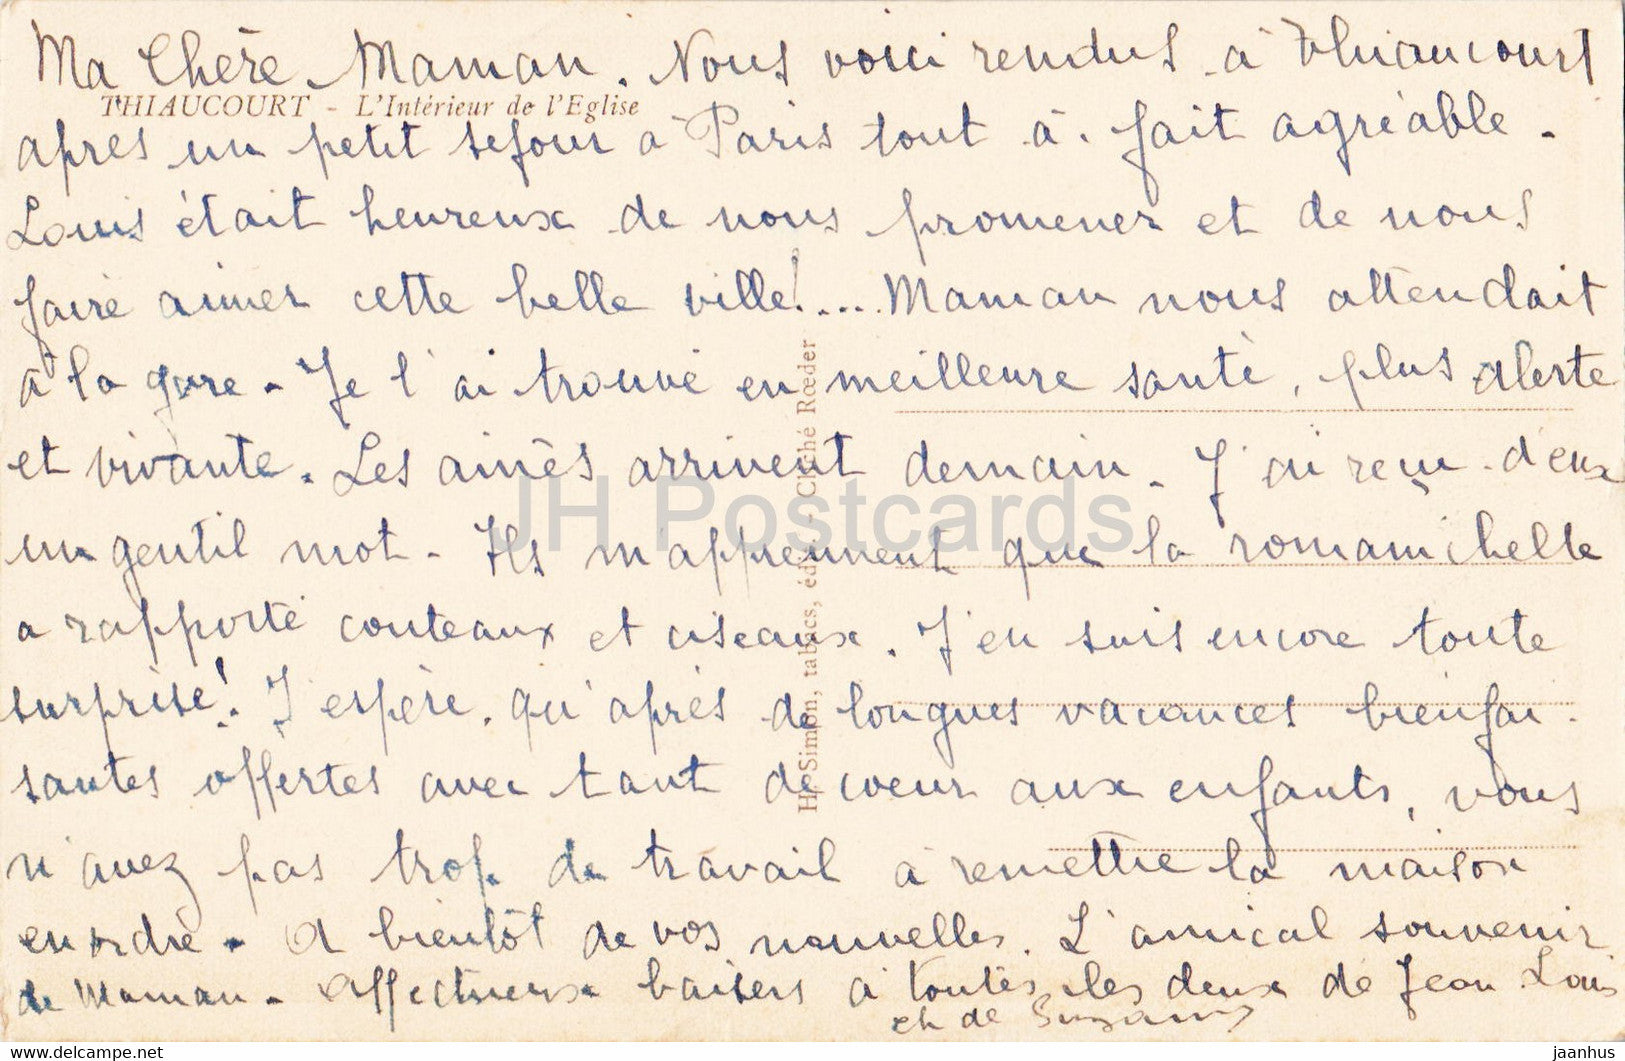 Ma Chère Maman. Nous voici rendus à Thiaucourt
THIAUCOURT - L'Intérieur de l'Eglise
après un petit séjour à Paris tout à fait agréable.
Louis était heureux de nous promener et de nous
faire aimer cette belle ville!.... Maman nous attendait
à la gare - Je l'ai trouvé en meilleure santé, plus alerte
et vivante. Les ainés arrivent demain. J'ai reçu d'eux
un gentil mot - Ils m'apprennent que la romanichelle
a rapporté couteaux et ciseaux. J'en suis encore toute
surprise! J'espère, qu'après de longues vacances bienfai-
santes offertes avec tant de coeur aux enfants, vous
n'avez pas trop de travail à remettre la maison
en ordre - A bientôt de vos nouvelles. L'amical souvenir
de Maman - Affectueux baisers à toutes les deux de Jean Louis
et de Suzanne
H. Simon, tabacs, édit. - Cliché Rœder
JH Postcards
delcampe.net
jaanhus